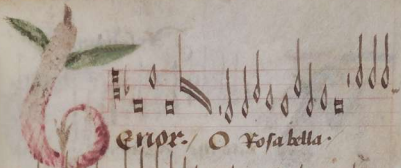 Tenor / O Rosa bella ·